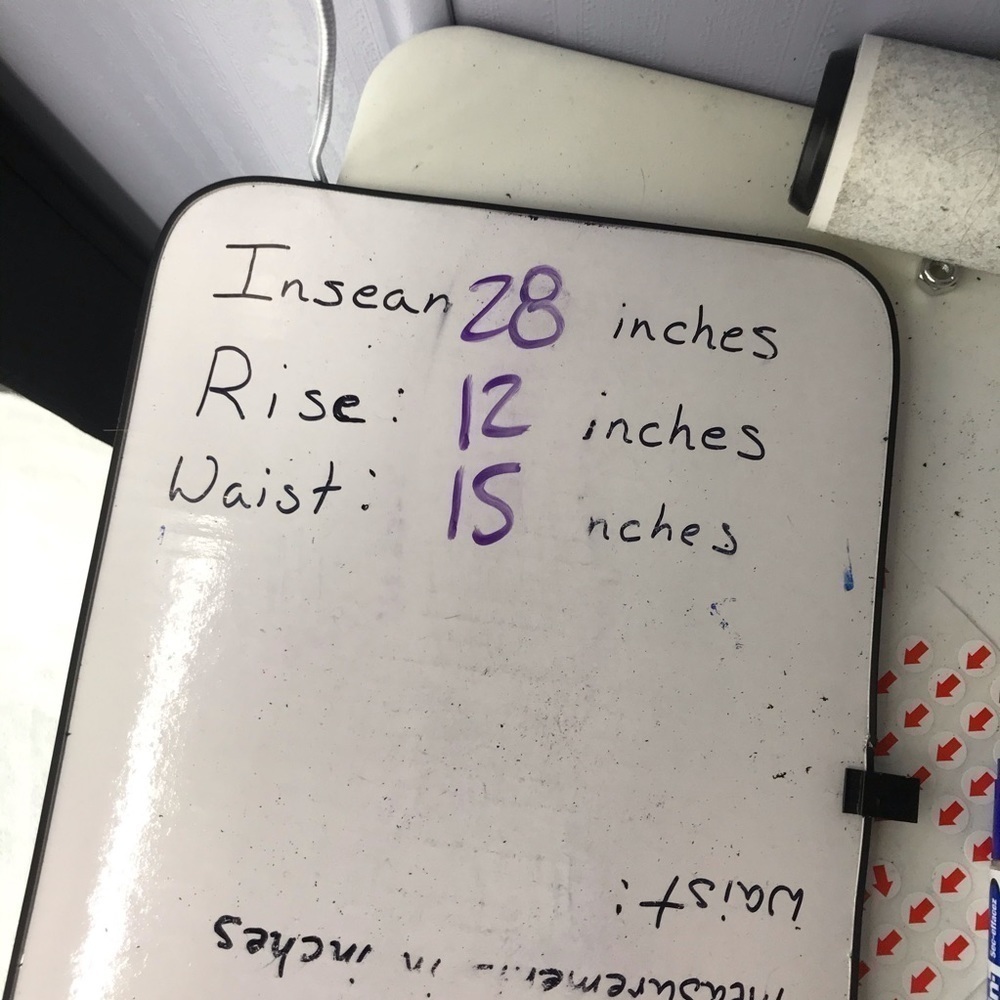 Insean 28 inches
Rise: 12 inches
Waist: 15 nches
Waist:
in inches